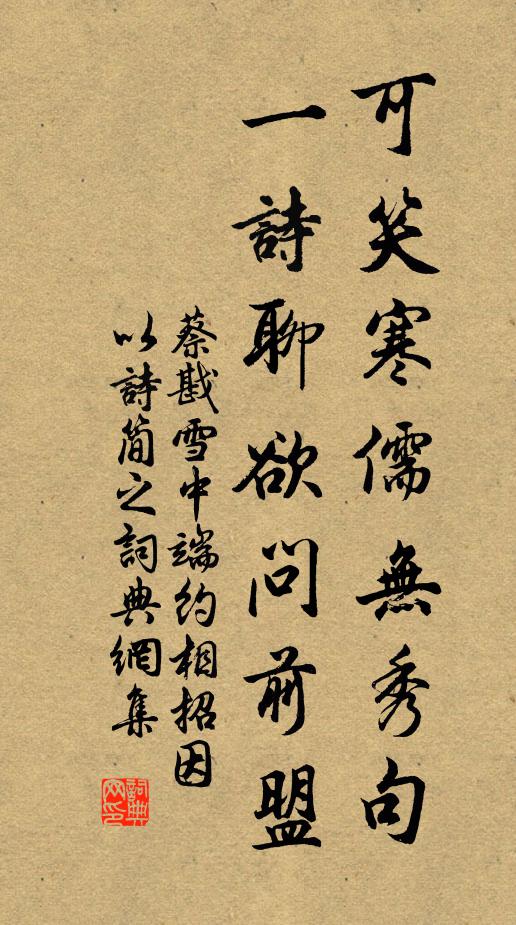 可笑寒儒無秀句
一詩聊欲問前盟
蔡戡雪中端約相招因
以詩簡之詞典網集
詞典网印